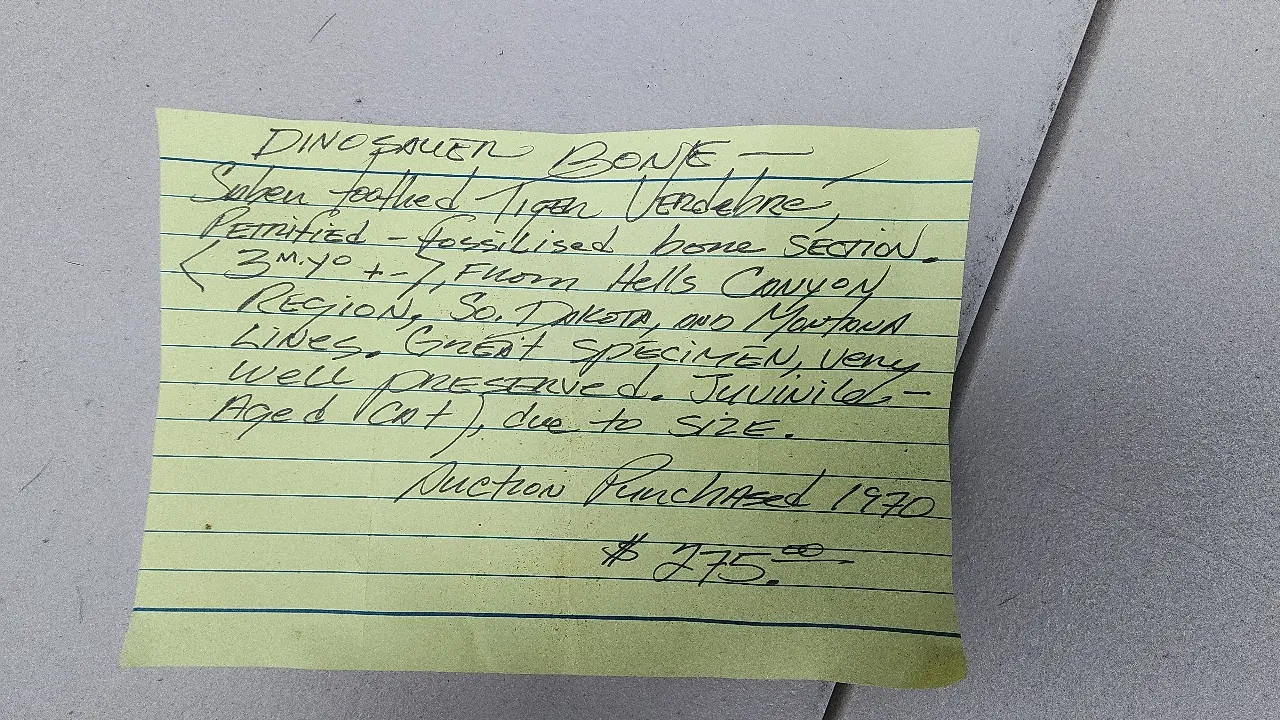 DINOSAUER BONE —
Saber toothed Tiger Verdebre,
Petrified - fossilised bone SECTION.
< 3 M.YO + - >, From Hells Canyon
Region, So. Dakota, and Montana
Lines. Great specimen, very
well preserved. Juvinile -
Aged (Cat), due to size.
Auction Purchased 1970
$ 275.00